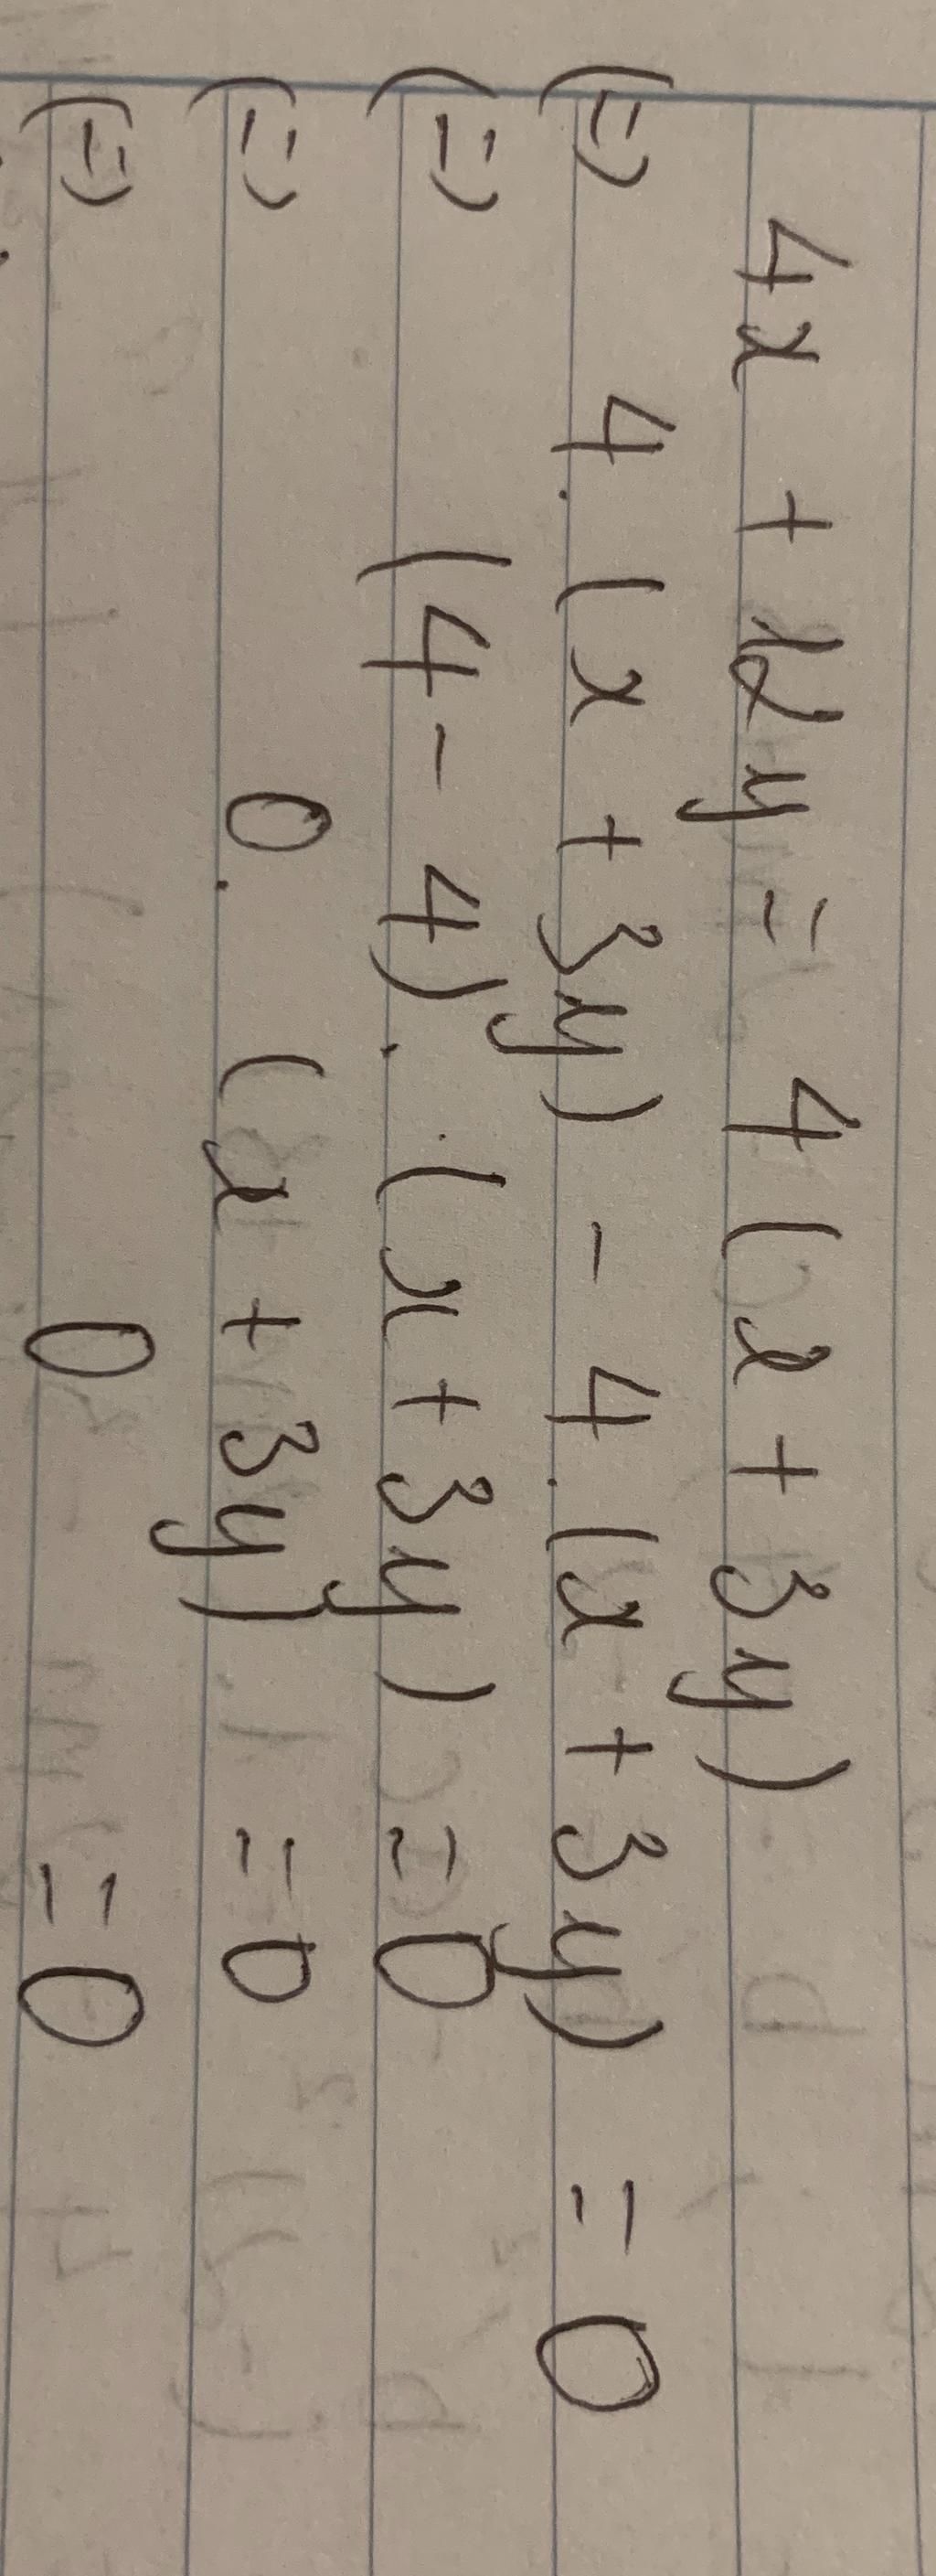 4x + 12y = 4(x + 3y)
(=) 4.(x + 3y) - 4.(x + 3y) = 0
(=) (4 - 4).(x + 3y) = 0
(=) 0.(x + 3y) = 0
(=) 0 = 0